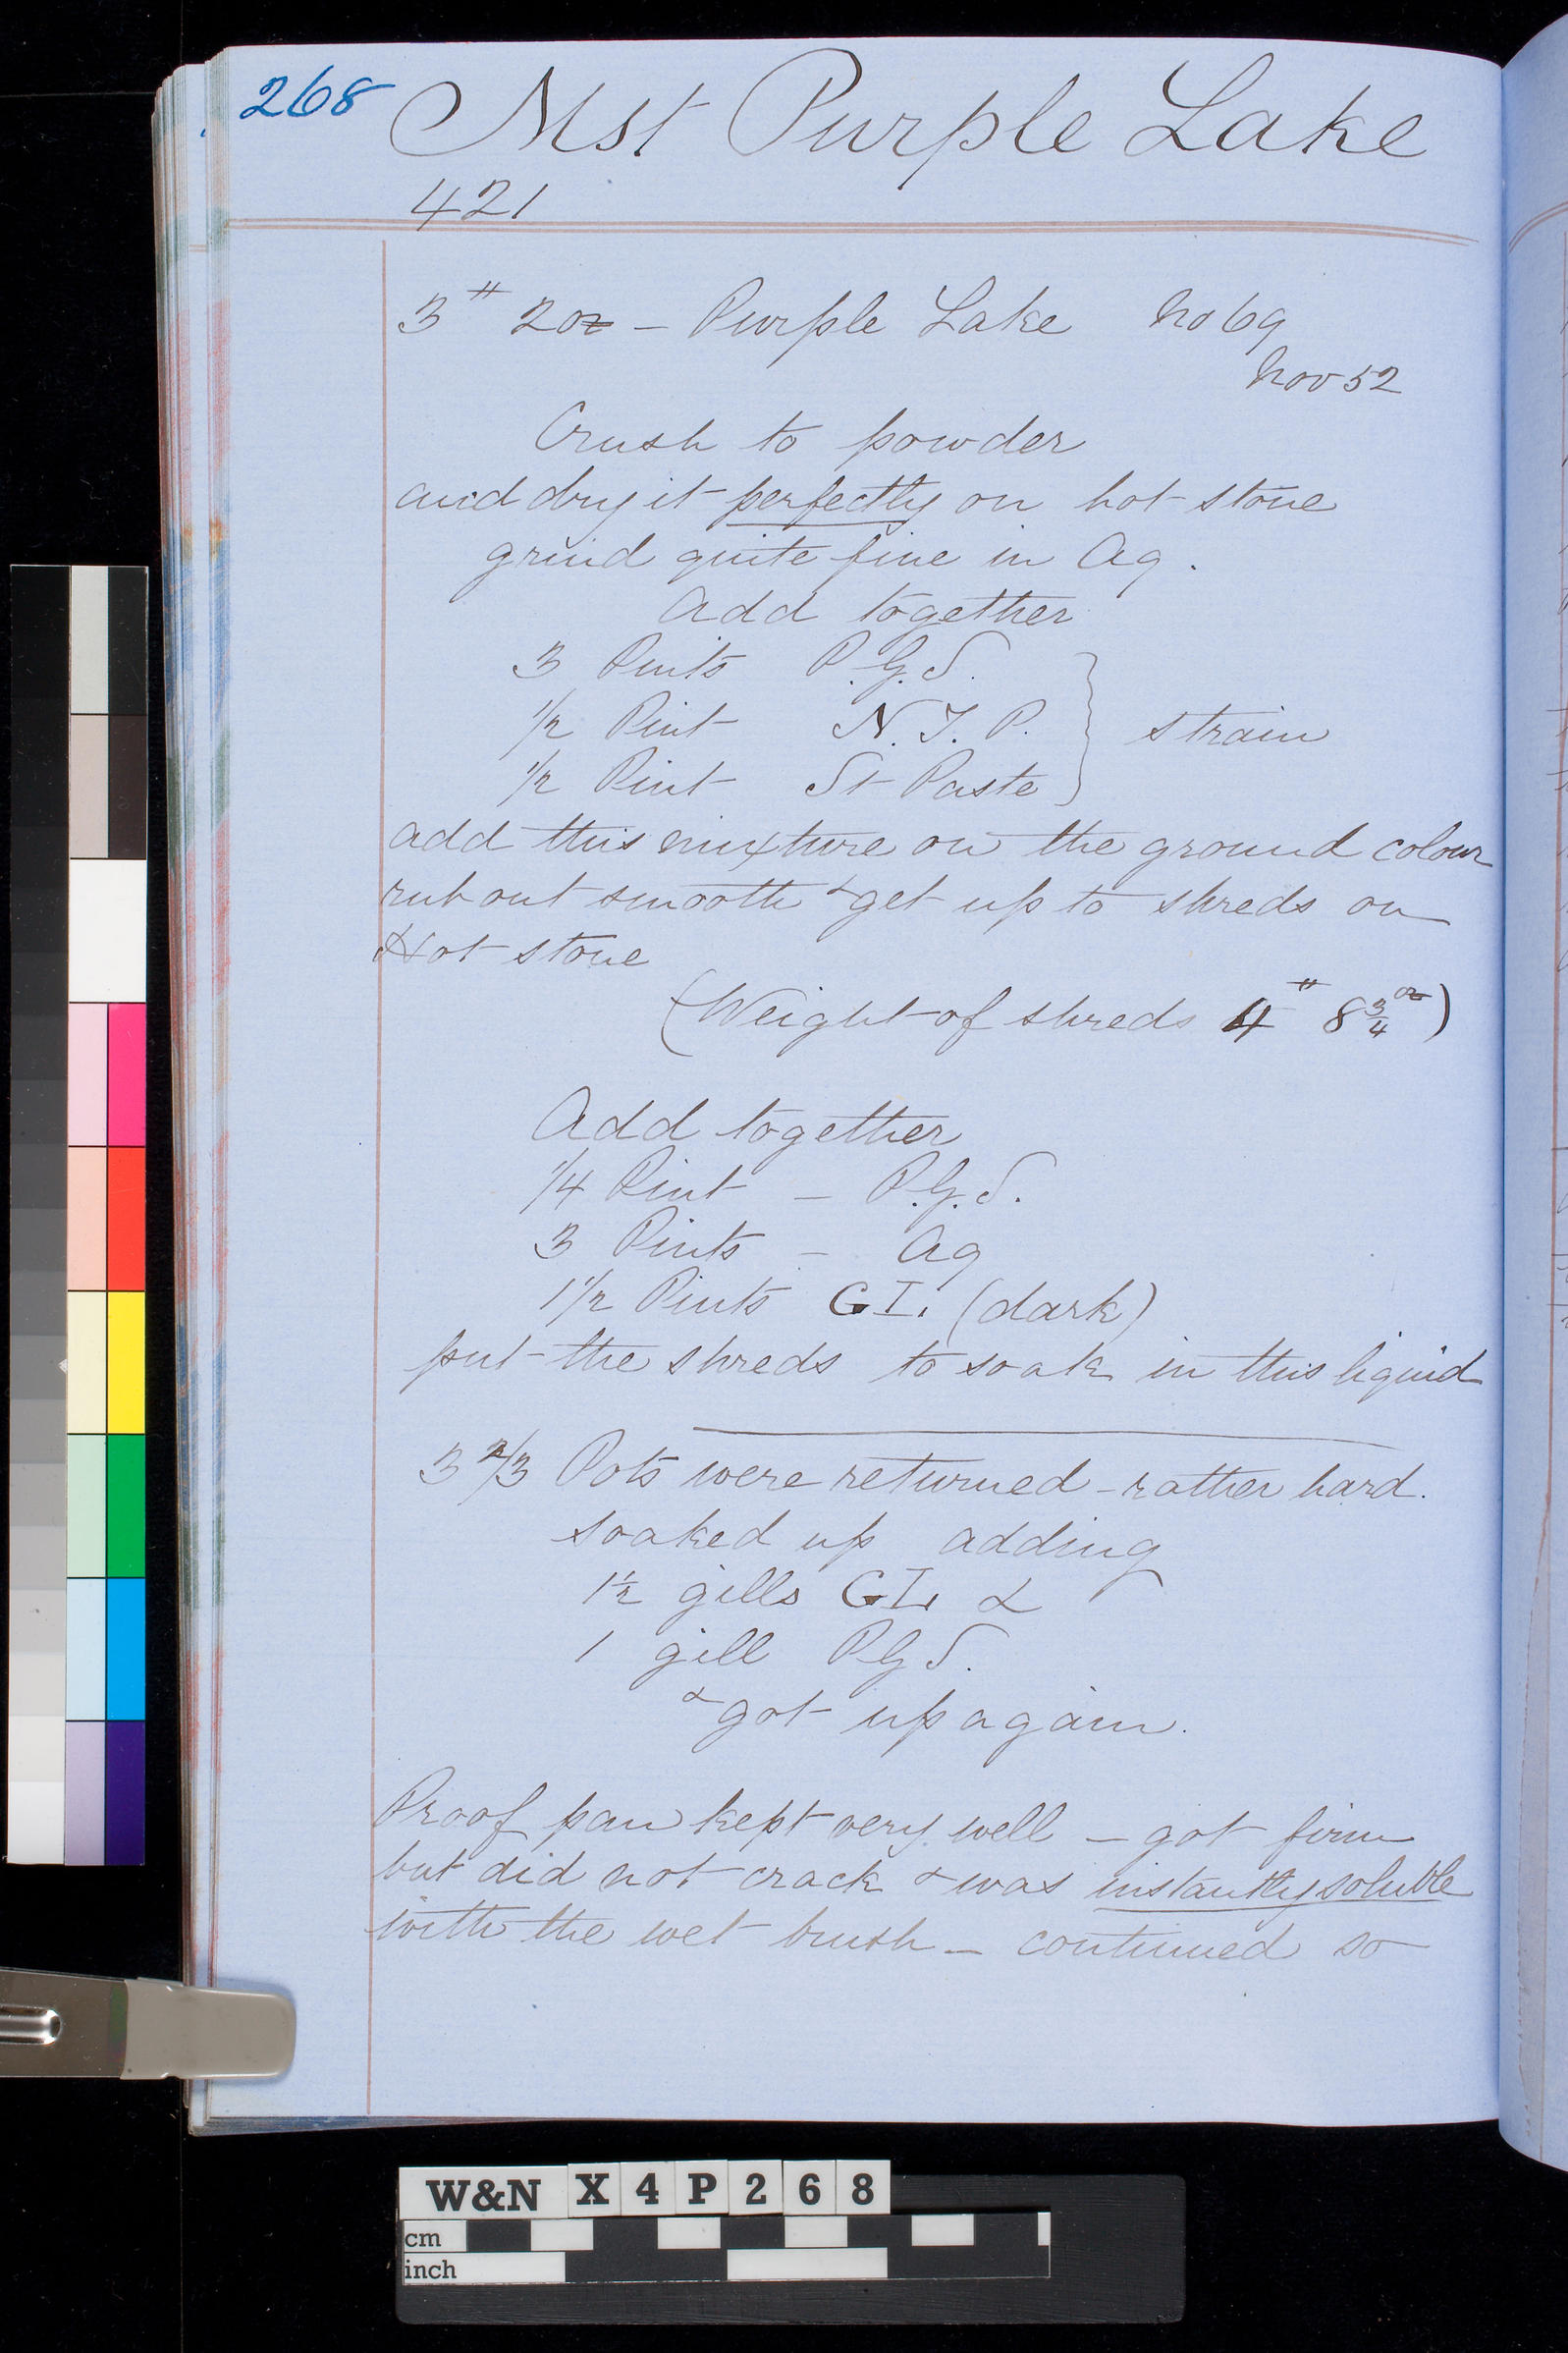 268 Mst Purple Lake
421
3# 2oz – Purple Lake No 69
Nov 52
Crush to powder
and dry it perfectly on hot stone
grind quite fine in Aq.
Add together
3 Pints P.G.S.
1/2 Pint N.J.P. } strain
1/2 Pint St Paste
add this mixture on the ground colour
rub out smooth & get up to shreds on
Hot stone
(Weight of shreds 4# 8 3/4 oz)
Add together
1/4 Pint – P.G.S.
3 Pints – Aq
1 1/2 Pints GI. (dark)
put the shreds to soak in this liquid
3 2/3 Pots were returned – rather hard.
soaked up adding
1 1/2 gills GI. &
1 gill PGS.
& got up again.
Proof pan kept very well – got firm
but did not crack & was instantly soluble
with the wet brush – continued so
W&N X 4 P 2 6 8
cm
inch